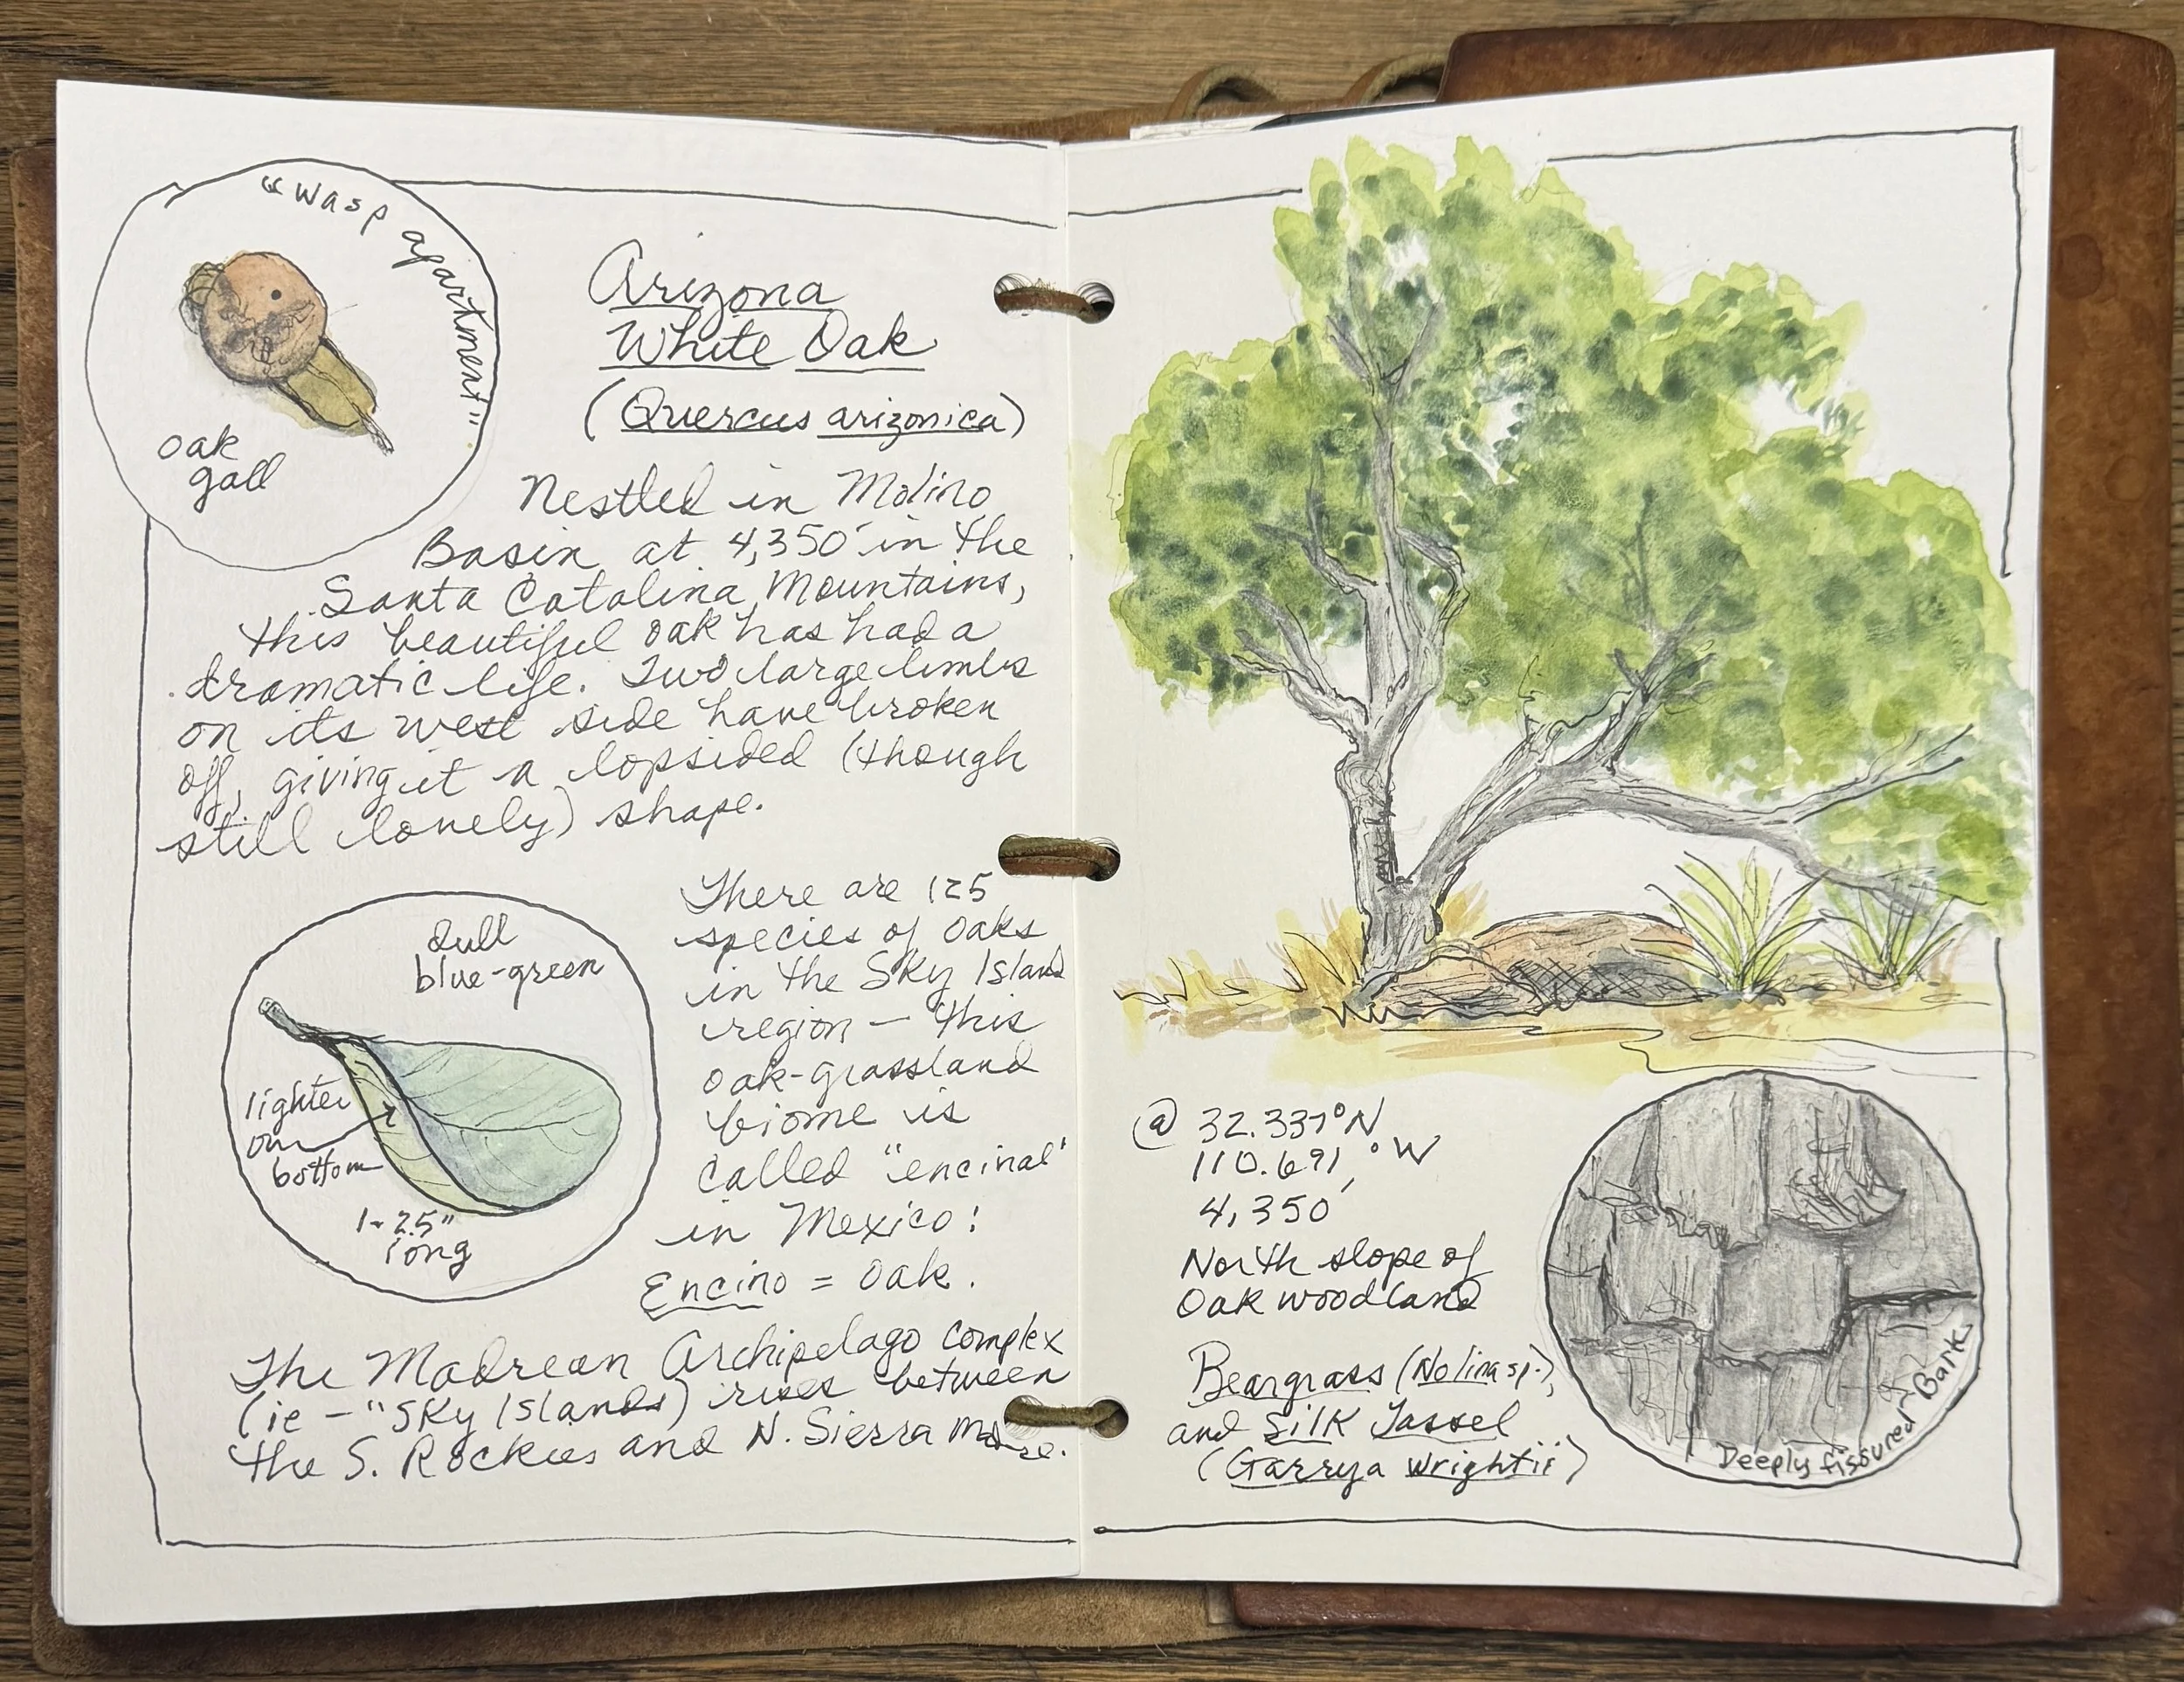 "Wasp apartment"
oak
gall
Arizona
White Oak
(Quercus arizonica)
Nestled in Molino
Basin at 4,350' in the
Santa Catalina Mountains,
this beautiful oak has had a
dramatic life. Two large limbs
on its west side have broken
off, giving it a lopsided (though
still lovely) shape.
dull
blue-green
lighter
on
bottom
1-2.5"
long
There are 125
species of oaks
in the Sky Island
region — this
oak-grassland
biome is
called "encinal"
in Mexico:
Encino = Oak.
The Madrean Archipelago complex
(ie - "Sky Islands) rises between
the S. Rockies and N. Sierra Madre.
@ 32.337°N
110.691,°W
4,350'
North slope of
Oak woodland
Beargrass (Nolina sp.),
and Silk Tassel
(Garrya wrightii)
Deeply fissured Bark